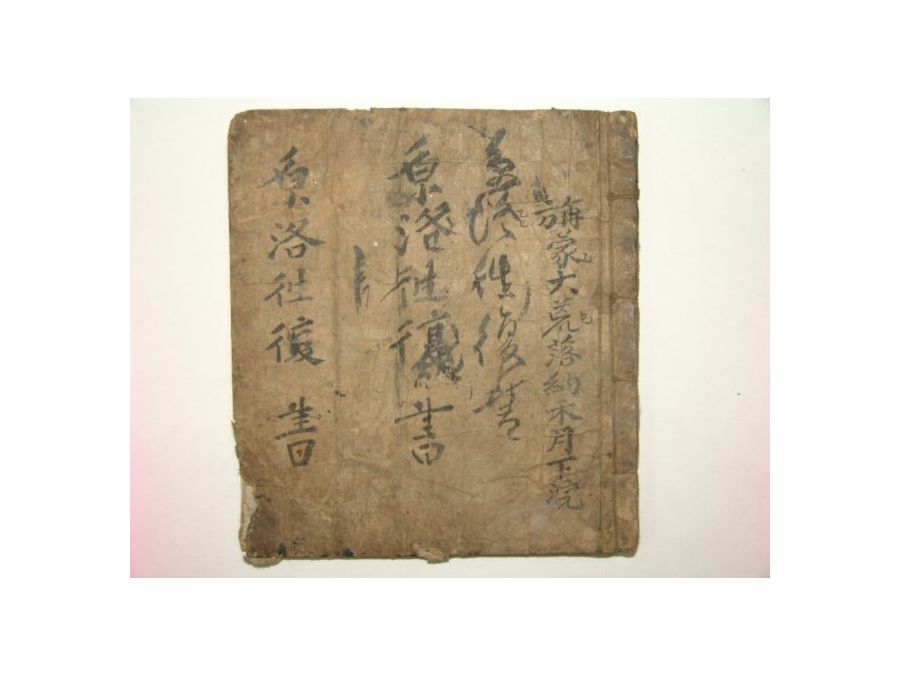 旃蒙大荒落納禾月下浣
洛往復書
原洛往復書
原洛往復書